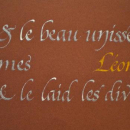 & le beau unisse
mes Léon
& le laid les div